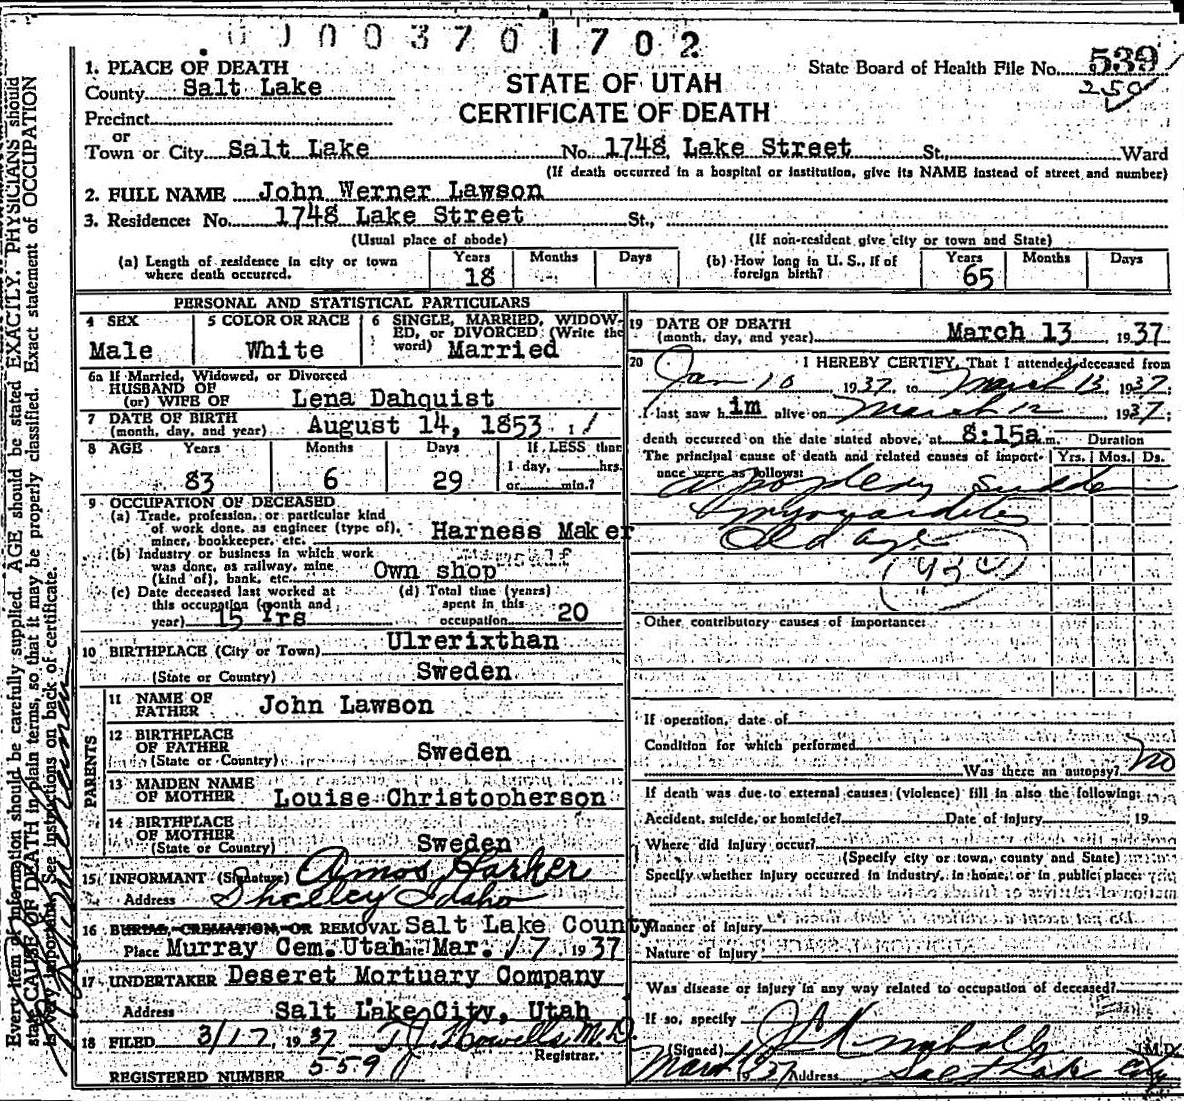 0 0 0 0 3 7 0 1 7 0 2
State Board of Health File No. 539
250
1. PLACE OF DEATH
STATE OF UTAH
County Salt Lake
CERTIFICATE OF DEATH
Precinct
or
Town or City Salt Lake No. 1748 Lake Street St., Ward
(If death occurred in a hospital or institution, give its NAME instead of street and number)
2. FULL NAME John Werner Lawson
3. Residence: No. 1748 Lake Street St.,
(Usual place of abode) (If non-resident give city or town and State)
(a) Length of residence in city or town where death occurred. Years 18 Months Days
(b) How long in U. S., if of foreign birth? Years 65 Months Days
PERSONAL AND STATISTICAL PARTICULARS
4 SEX Male
5 COLOR OR RACE White
6 SINGLE, MARRIED, WIDOWED, or DIVORCED (Write the word) Married
6a If Married, Widowed, or Divorced
HUSBAND OF
(or) WIFE OF Lena Dahquist
7 DATE OF BIRTH
(month, day, and year) August 14, 1853
8 AGE Years 83 Months 6 Days 29 If LESS than 1 day, hrs. or min.?
9 OCCUPATION OF DECEASED
(a) Trade, profession, or particular kind of work done, as engineer (type of), miner, bookkeeper, etc. Harness Maker
(b) Industry or business in which work was done, as railway, mine (kind of), bank, etc. Own shop
(c) Date deceased last worked at this occupation (month and year) 15 Yrs
(d) Total time (years) spent in this occupation 20
10 BIRTHPLACE (City or Town) Ulrerixthan
(State or Country) Sweden
PARENTS
11 NAME OF FATHER John Lawson
12 BIRTHPLACE OF FATHER
(State or Country) Sweden
13 MAIDEN NAME OF MOTHER Louise Christopherson
14 BIRTHPLACE OF MOTHER
(State or Country) Sweden
15 INFORMANT (Signature) Amos Harker
Address Shelley Idaho
16 BURIAL, CREMATION, OR REMOVAL Salt Lake County
Place Murray Cem. Utah Date Mar. 17, 1937
17 UNDERTAKER Deseret Mortuary Company
Address Salt Lake City, Utah
18 FILED 3/17, 1937 T. J. Howells, M.D.
Registrar.
REGISTERED NUMBER 559
19 DATE OF DEATH
(month, day, and year) March 13, 1937
20 I HEREBY CERTIFY, That I attended deceased from
Jan 10 1937, to March 13, 1937.
I last saw him alive on March 12, 1937;
death occurred on the date stated above, at 8:15a m. Duration
The principal cause of death and related causes of importance were as follows: Yrs. Mos. Ds.
myocarditis
Old age
Other contributory causes of importance:
If operation, date of
Condition for which performed
Was there an autopsy? No
If death was due to external causes (violence) fill in also the following:
Accident, suicide, or homicide? Date of injury 19
Where did injury occur?
(Specify city or town, county and State)
Specify whether injury occurred in industry, in home, or in public place:
Manner of injury
Nature of injury
Was disease or injury in any way related to occupation of deceased?
If so, specify
(Signed) M.D.
1937 Address Salt Lake City
Every item of information should be carefully supplied. AGE should be stated EXACTLY. PHYSICIANS should
state CAUSE OF DEATH in plain terms, so that it may be properly classified. Exact statement of OCCUPATION
is very important. See instructions on back of certificate.